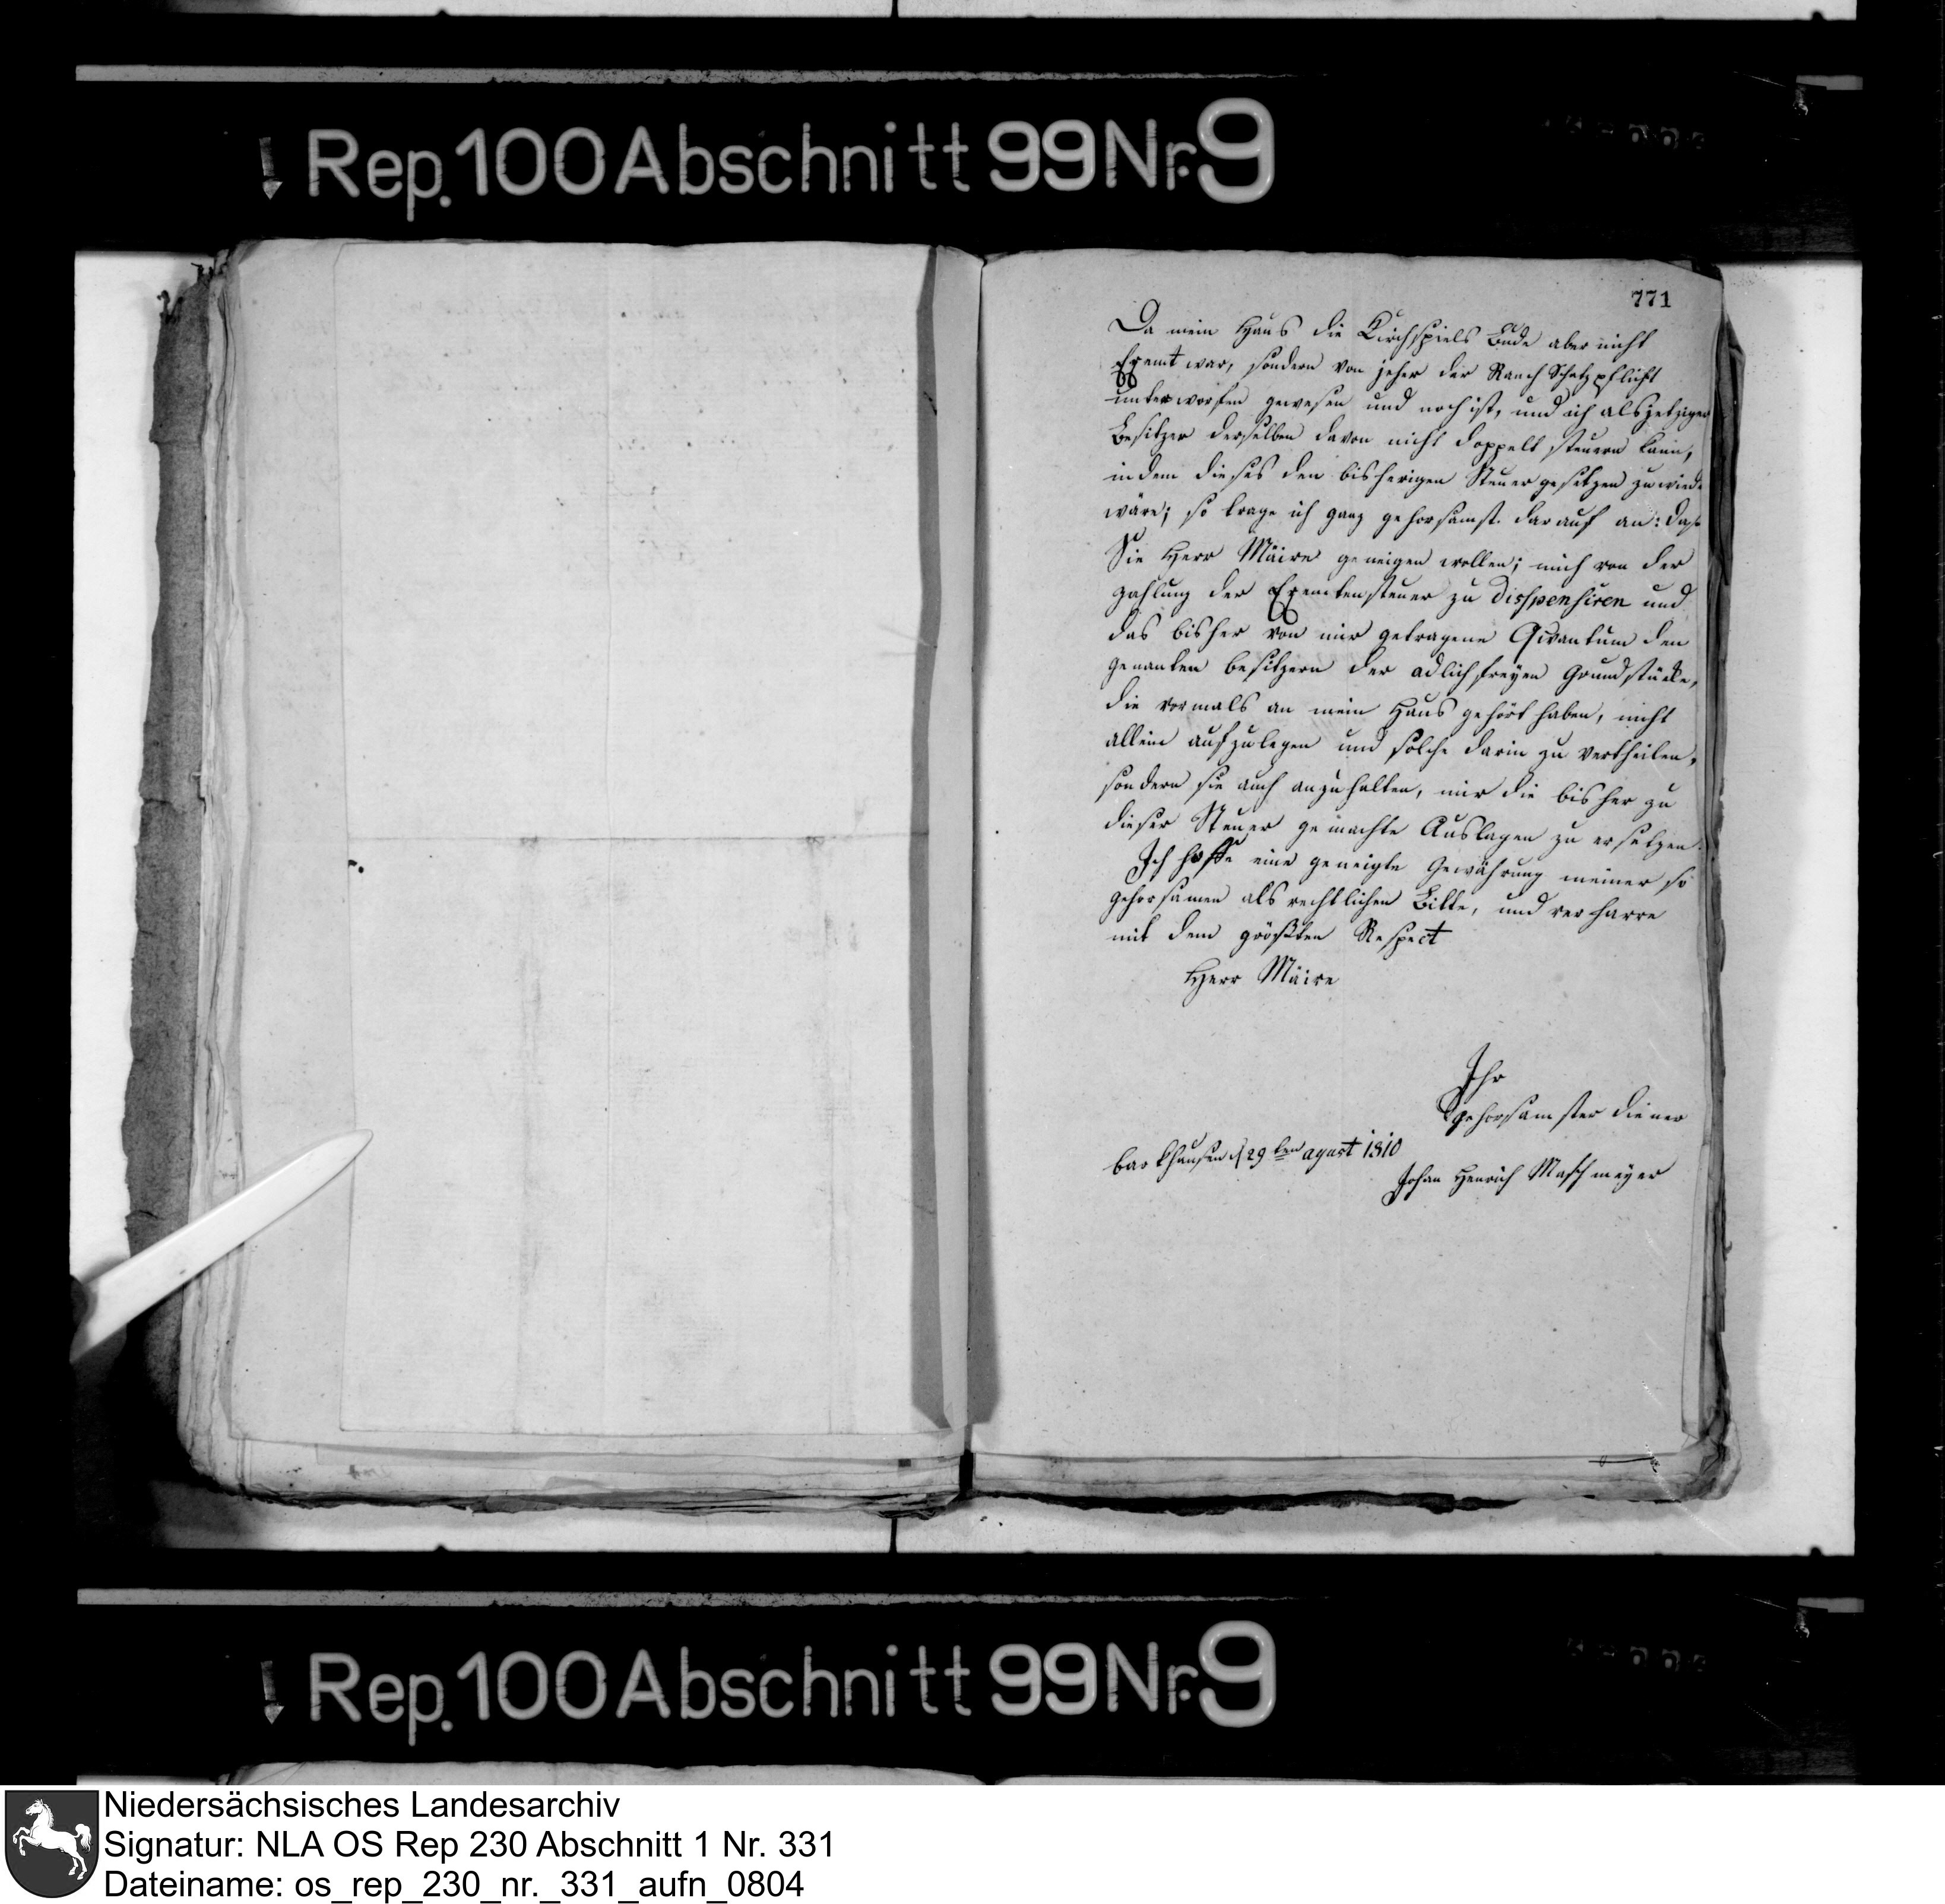 Rep. 100 Abschnitt 99 Nr. 9
771
Da mein Haus die Kirchspiels Bude aber nicht
Exemt war, sondern von jeher der Rauch Schatzpflicht
unterworfen gewesen und noch ist, und ich als jetziger
Besitzer derselben davon nicht doppelt steuern kann,
indem dieses den bisherigen Steuergesetzen zuwieder
wäre; so trage ich ganz gehorsamst darauf an: daß
Sie Herr Màire geneigen wollen; mich von der
zahlung der Exemtensteuer zu dispensiren und
das bisher von mir getragene Qvantum den
genanten besitzern der adlichfreyen Grundstücke,
die vormals an mein Haus gehört haben, nicht
allein aufzulegen und solche darin zu vertheilen,
sondern sie auch anzuhalten, mir die bisher zu
dieser Steuer gemachte Auslagen zu ersetzen.
Ich hoffe eine geneigte Gewährung meiner so
gehorsamen als rechtlichen Bitte, und verharre
mit dem größten Respect
Herr Màire
Ihr
gehorsamster diener
barkhausen d 29ten agust 1810
Johan Henrich Maschmeyer
Rep. 100 Abschnitt 99 Nr. 9
Niedersächsisches Landesarchiv
Signatur: NLA OS Rep 230 Abschnitt 1 Nr. 331
Dateiname: os_rep_230_nr._331_aufn_0804